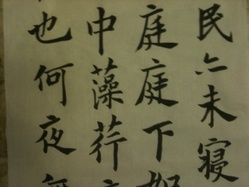 民亦未寝
庭庭下如
中藻荇
也何夜無